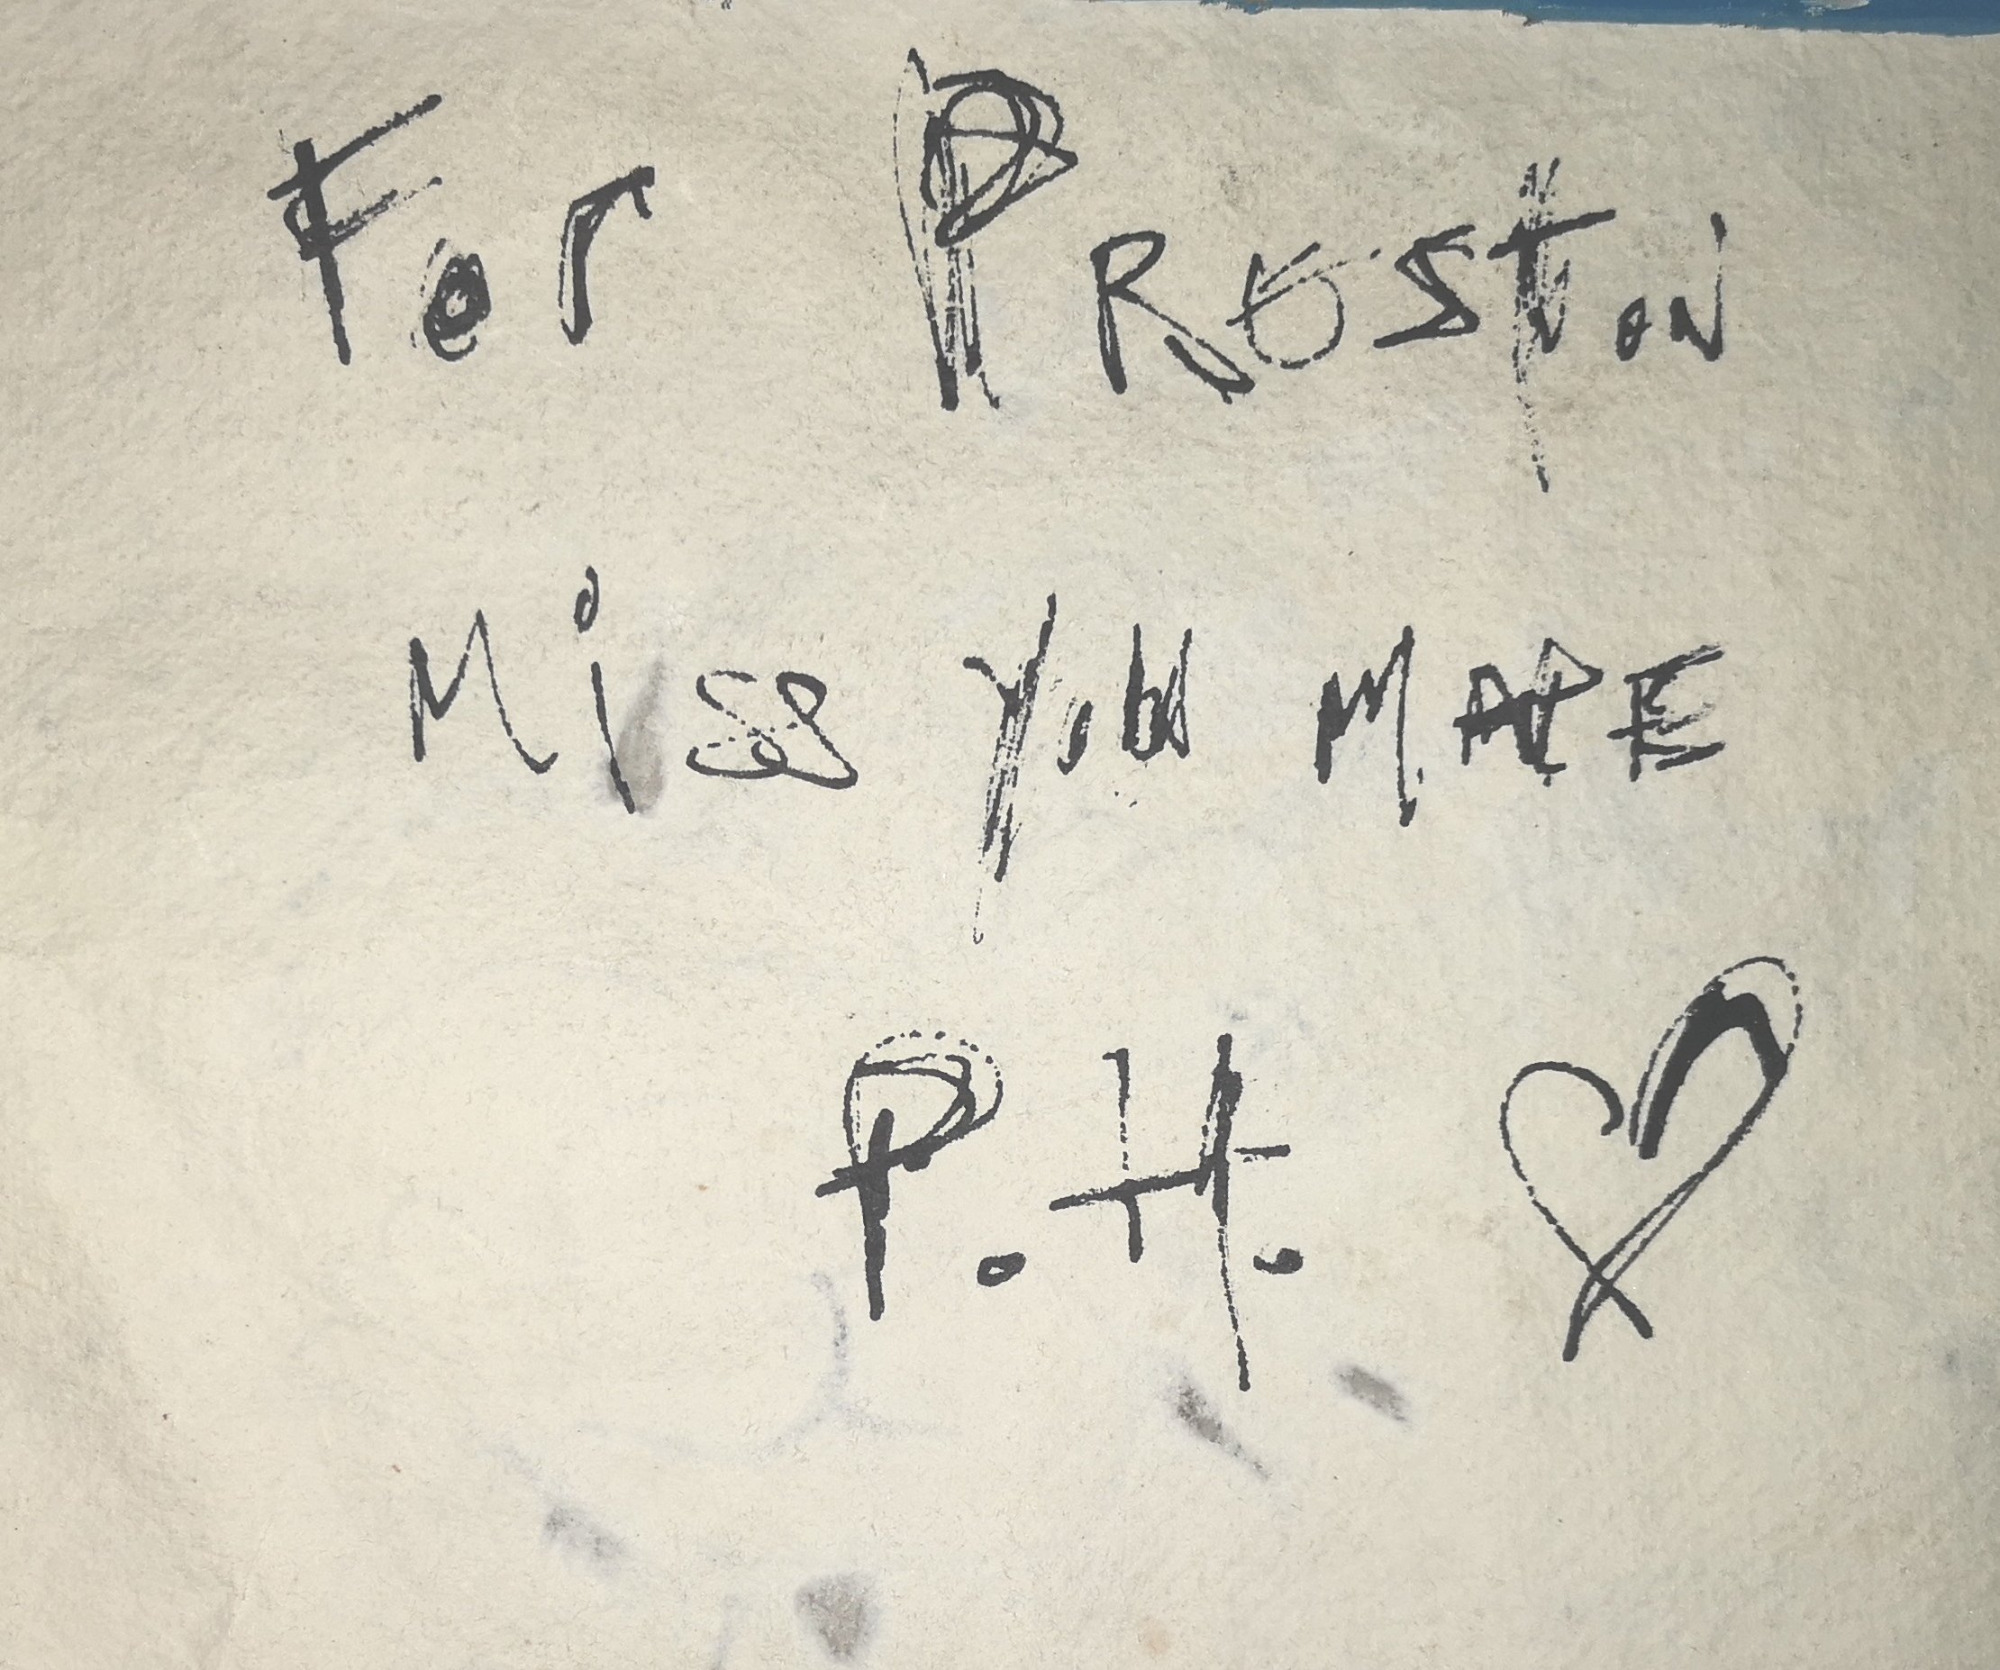 For PRESTON
Miss you MATE
P.H. ♡